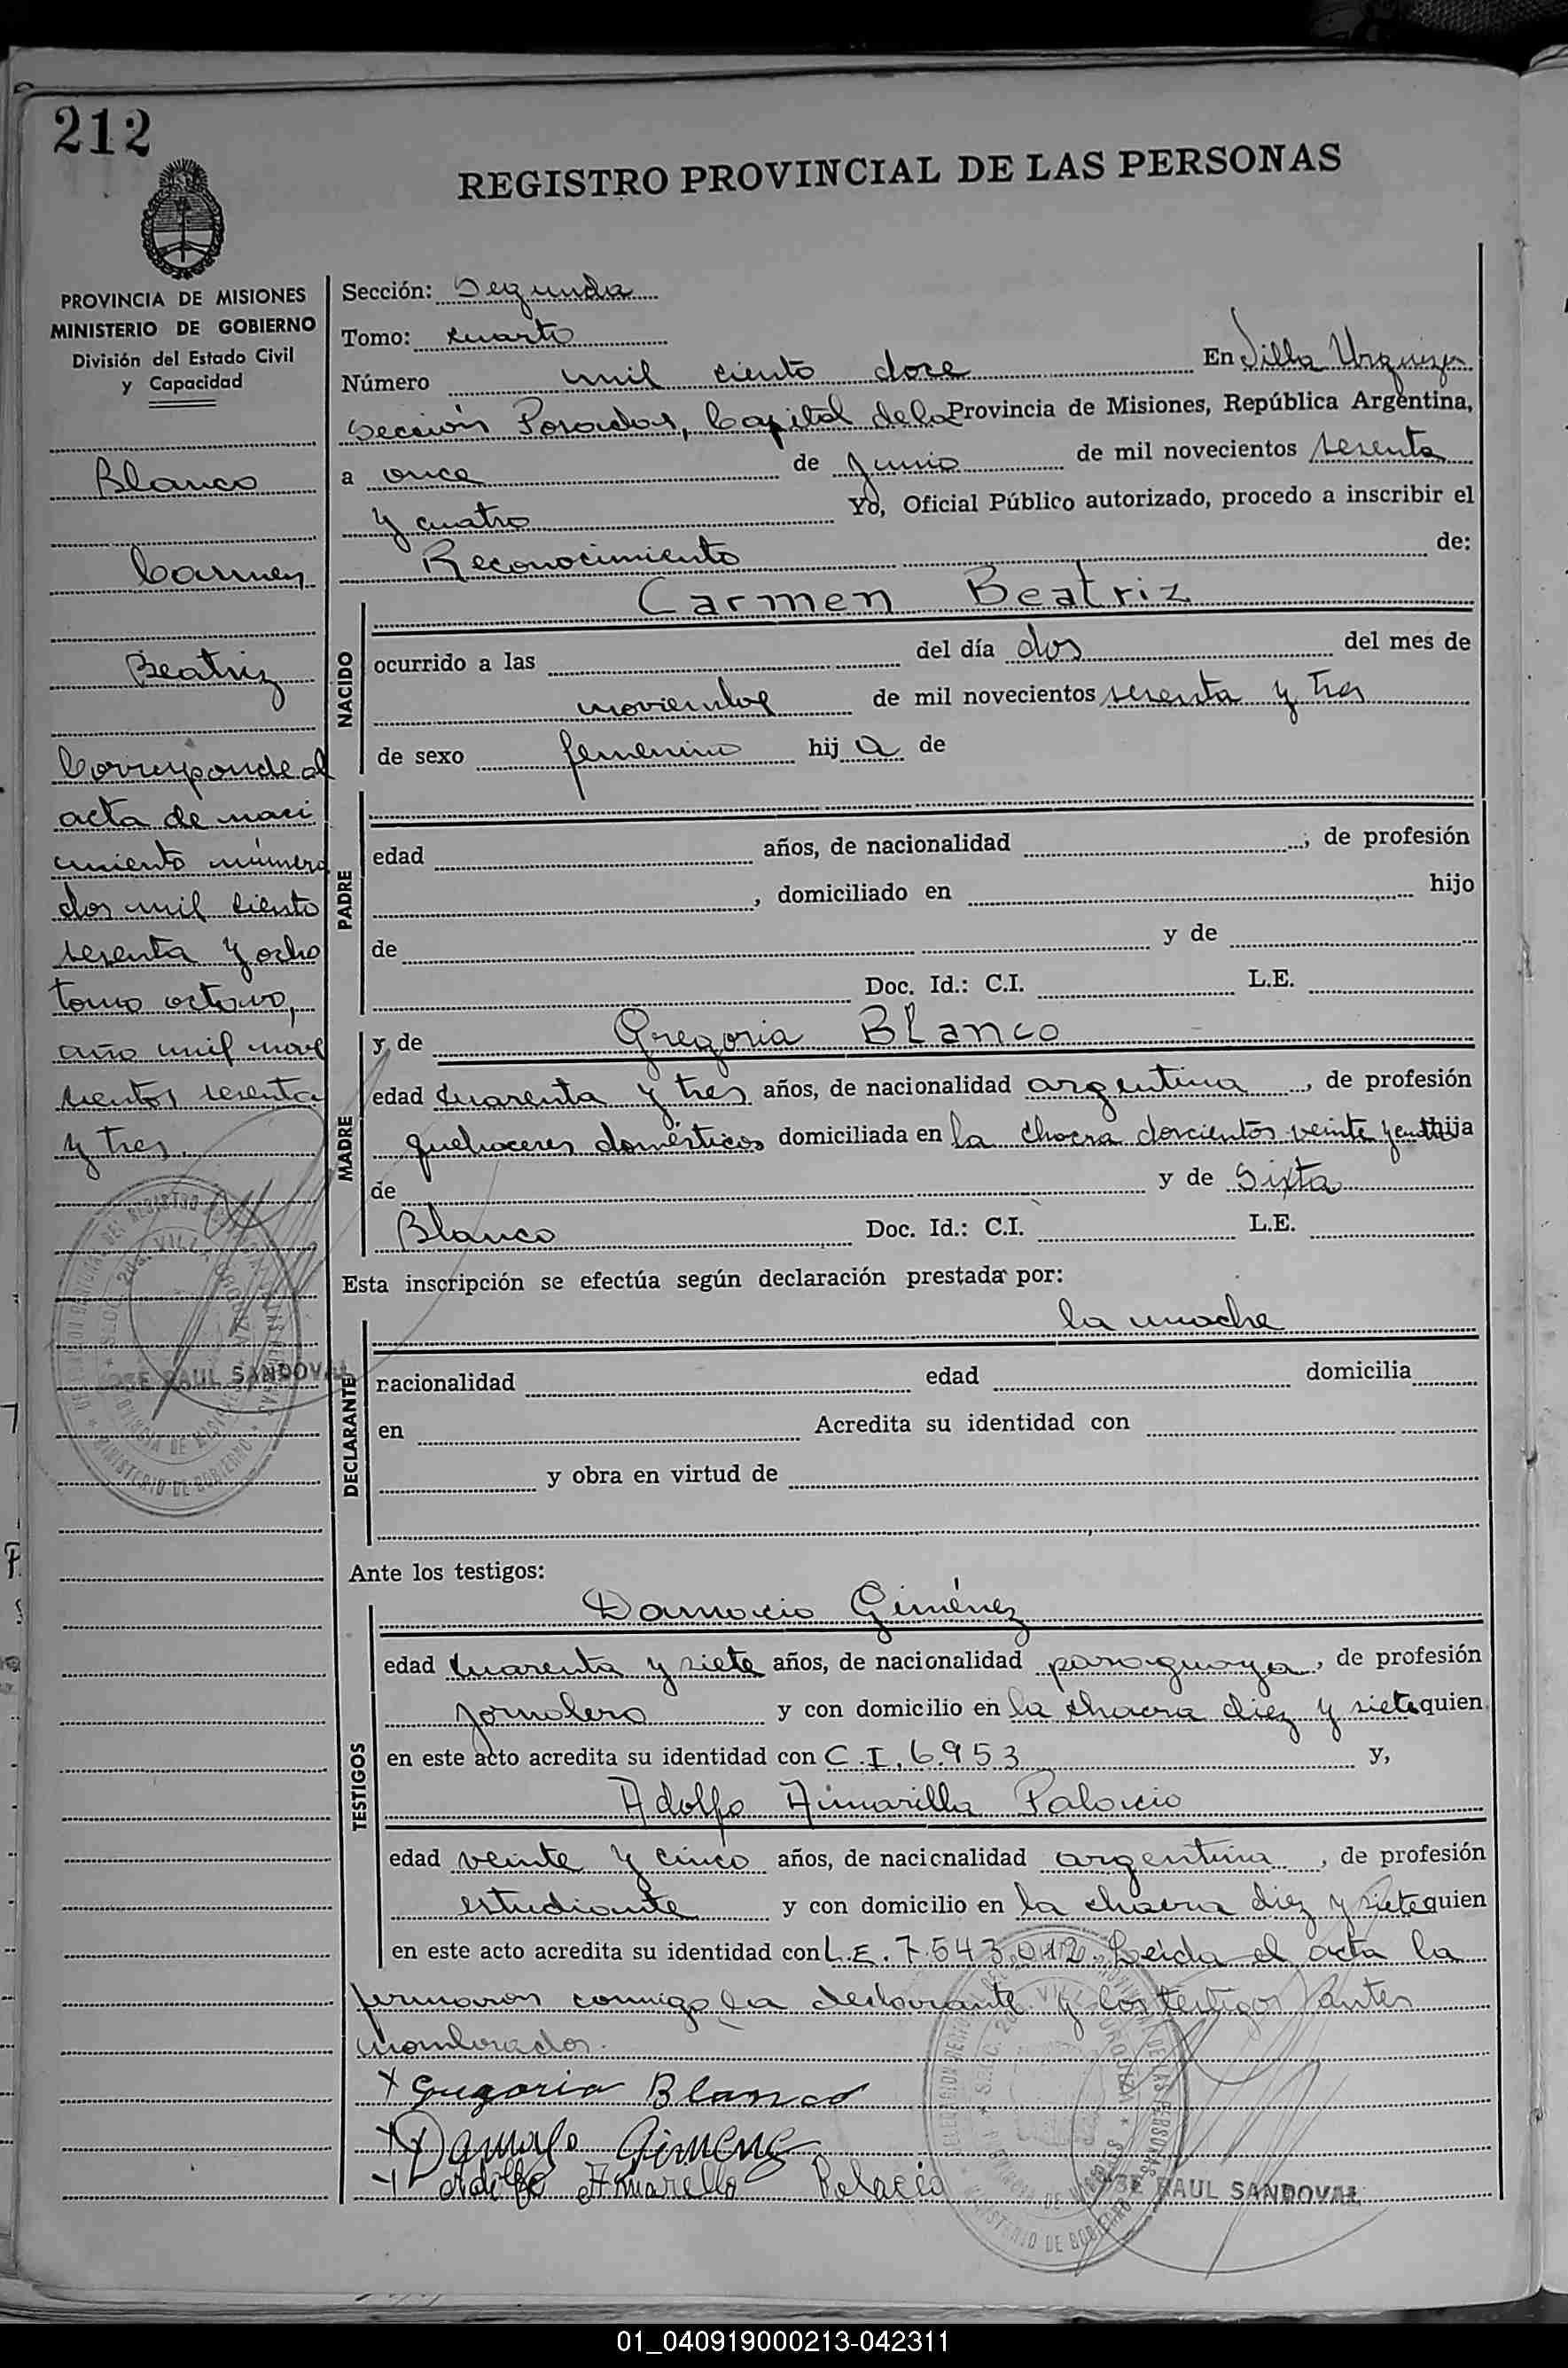 212
REGISTRO PROVINCIAL DE LAS PERSONAS
PROVINCIA DE MISIONES
MINISTERIO DE GOBIERNO
División del Estado Civil
y Capacidad
Blanco
Carmen
Beatriz
Corresponde al
acta de naci
miento número
dos mil ciento
sesenta y ocho
tomo octavo,
año mil nove
cientos sesenta
y tres.
JOSE RAUL SANDOVAL
Sección: Segunda
Tomo: Cuarto
Número mil ciento doce En Villa Urquiza
Sección Posadas, Capital de la Provincia de Misiones, República Argentina,
a once de Junio de mil novecientos sesenta
y cuatro Yo, Oficial Público autorizado, procedo a inscribir el
Reconocimiento de:
Carmen Beatriz
NACIDO
ocurrido a las del día dos del mes de
noviembre de mil novecientos sesenta y tres
de sexo femenino hija de
PADRE
edad años, de nacionalidad , de profesión
, domiciliado en hijo
de y de
Doc. Id.: C.I. L.E.
MADRE
y de Gregoria BLanco
edad cuarenta y tres años, de nacionalidad argentina , de profesión
quehaceres domésticos domiciliada en la chacra doscientos veinte y hija
de y de Sixta
Blanco Doc. Id.: C.I. L.E.
Esta inscripción se efectúa según declaración prestada por:
la madre
DECLARANTE
nacionalidad edad domicilia
en Acredita su identidad con
y obra en virtud de
Ante los testigos:
TESTIGOS
Damacio Giménez
edad cuarenta y siete años, de nacionalidad paraguaya , de profesión
jornalero y con domicilio en la chacra diez y siete quien
en este acto acredita su identidad con C.I. 6.953 y,
Adolfo Amarilla Palacio
edad veinte y cinco años, de nacionalidad argentina , de profesión
estudiante y con domicilio en la chacra diez y siete quien
en este acto acredita su identidad con L.E. 7.543.012. Leída el acta la
firmaron conmigo la declarante y los testigos antes
nombrados.
Gregoria Blanco
Gimenez
Adolfo Amarilla Palacio
JOSE RAUL SANDOVAL
01_040919000213-042311